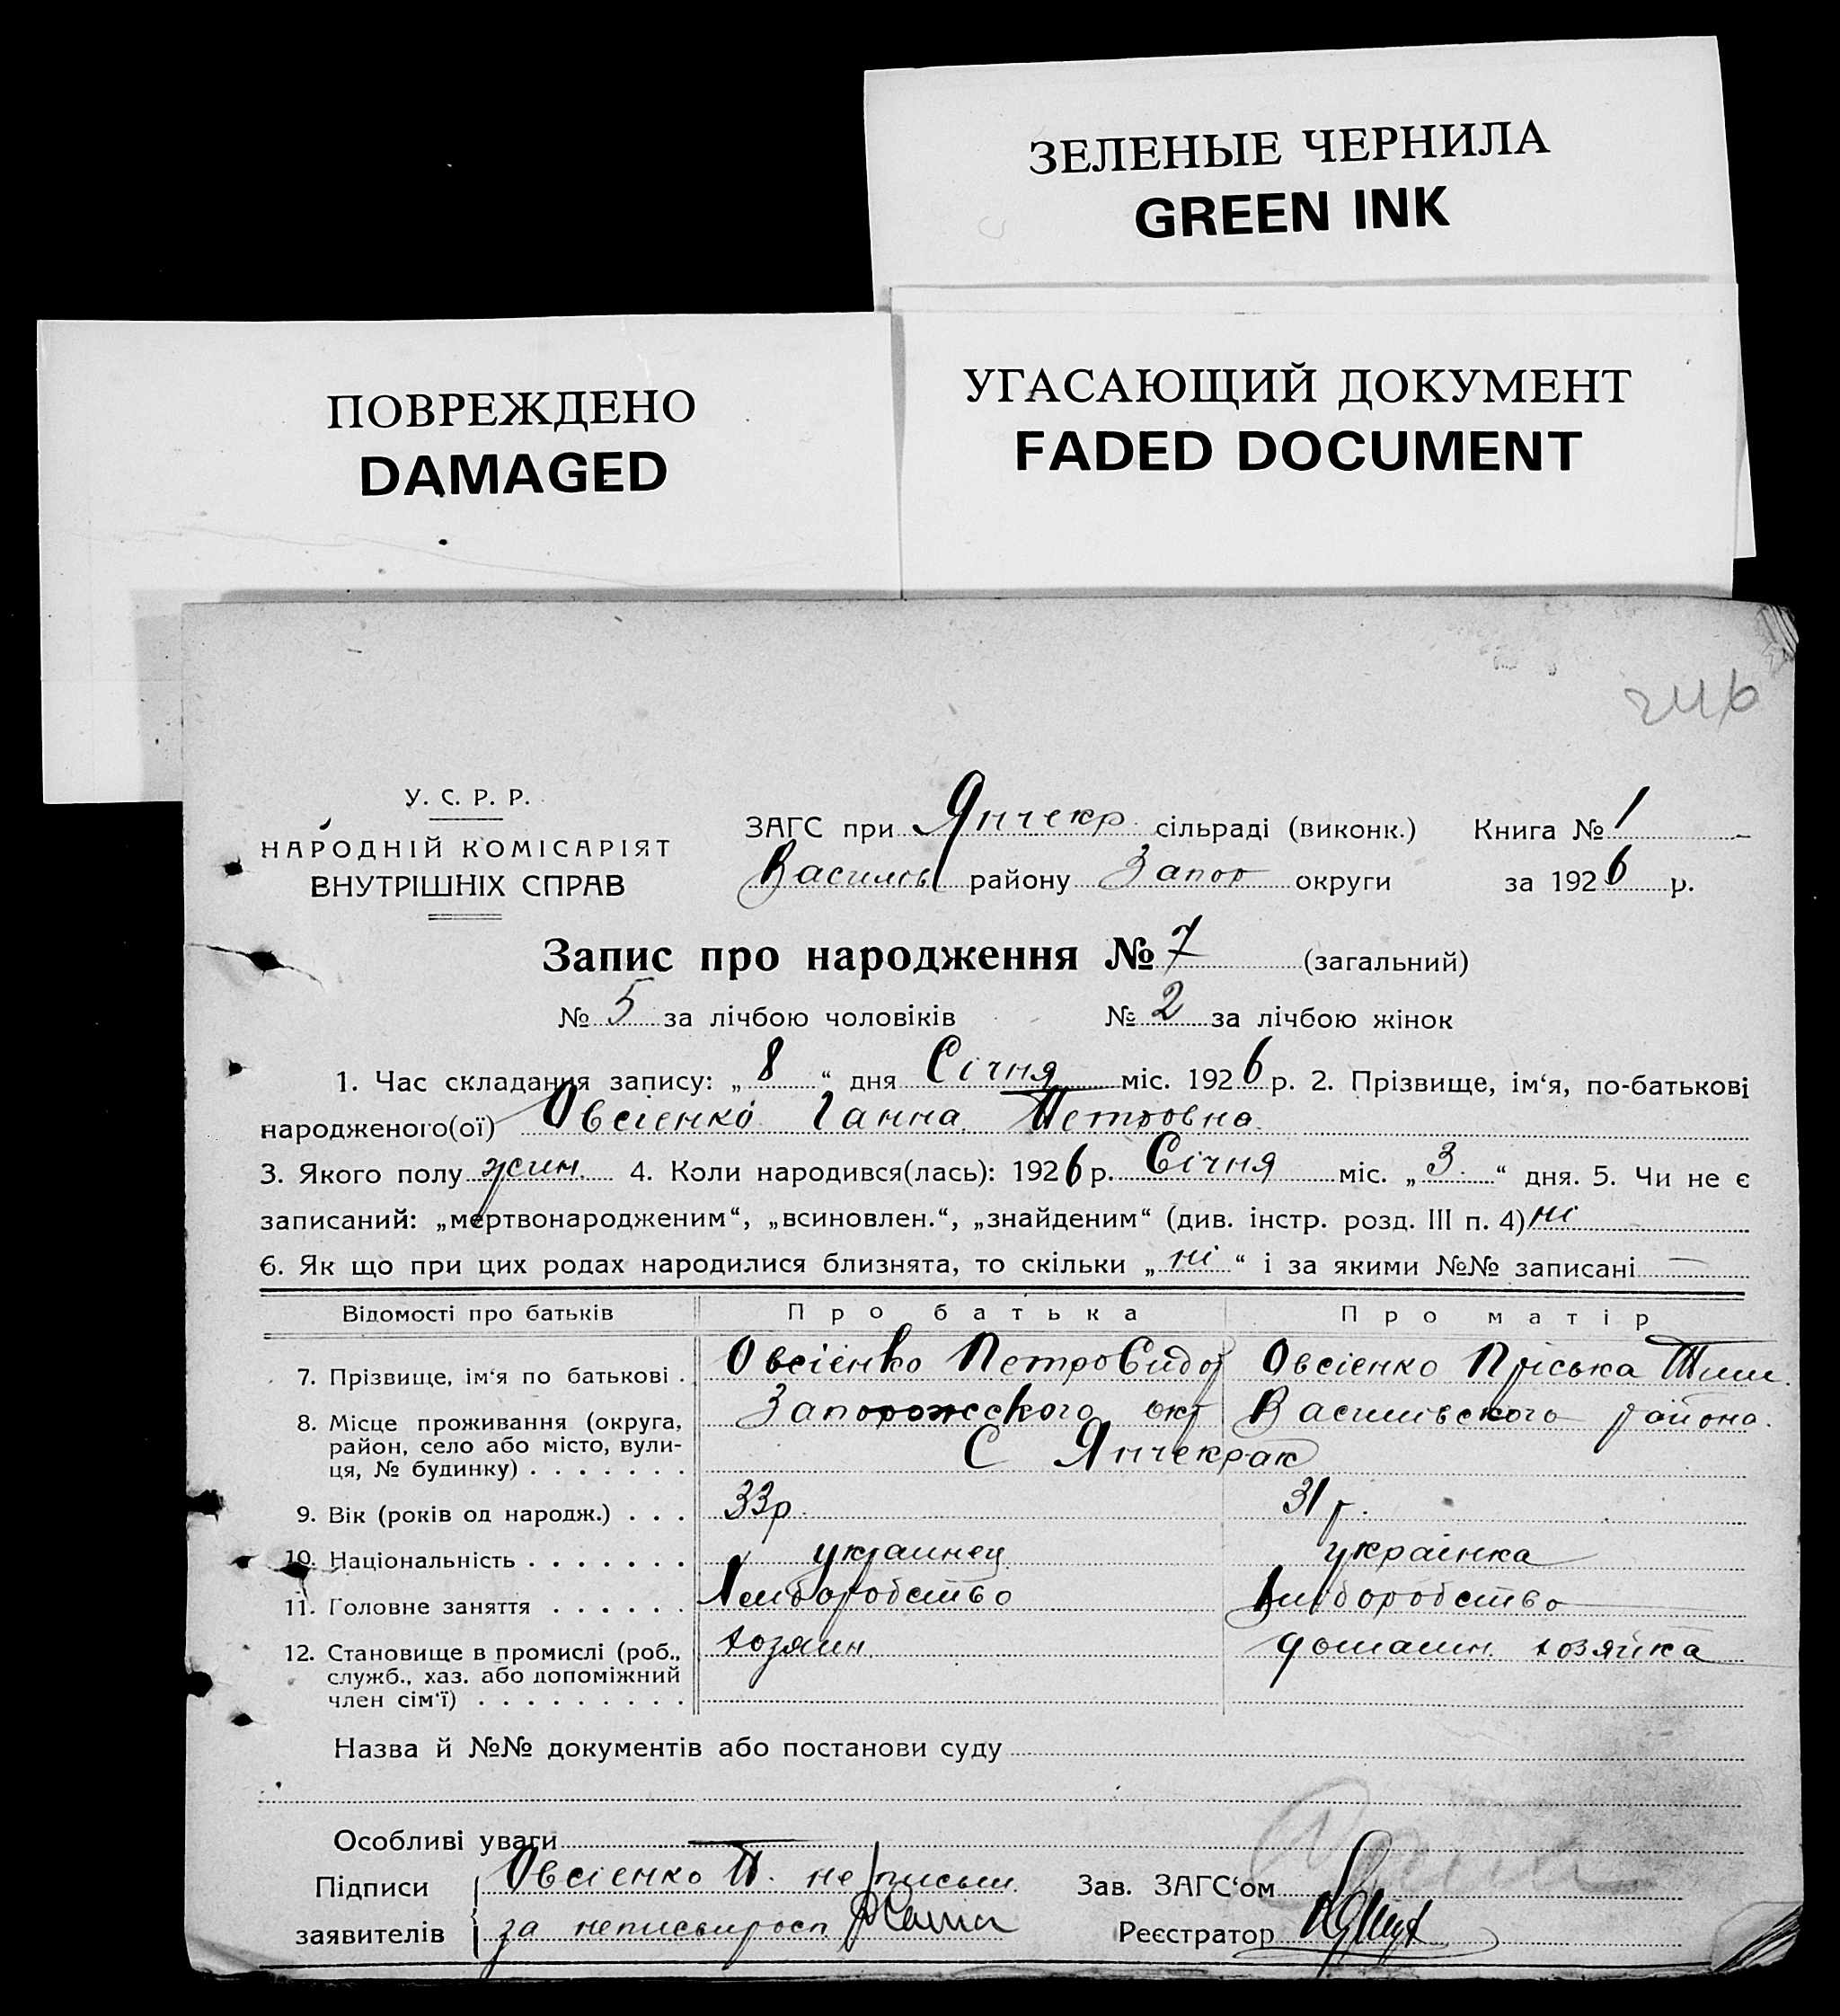 ЗЕЛЕНЫЕ ЧЕРНИЛА
GREEN INK
ПОВРЕЖДЕНО
DAMAGED
УГАСАЮЩИЙ ДОКУМЕНТ
FADED DOCUMENT
У. С. Р. Р.
НАРОДНІЙ КОМІСАРІЯТ
ВНУТРІШНІХ СПРАВ
ЗАГС при Янчекр сільраді (виконк.) Книга № 1
Василів району Запор округи за 1926 р.
Запис про народження № 7 (загальний)
№ 5 за лічбою чоловіків № 2 за лічбою жінок
1. Час складання запису: „8“ дня Січня міс. 1926 р. 2. Прізвище, ім‘я, по-батькові
народженого(ої) Овсієнко Ганна Петровна
3. Якого полу жин. 4. Коли народився(лась): 1926 р. Січня міс. „3“ дня. 5. Чи не є
записаний: „мертвонародженим“, „всиновлен.“, „знайденим“ (див. інстр. розд. III п. 4) ні
6. Як що при цих родах народилися близнята, то скільки „ні“ і за якими №№ записані —
Відомості про батьків Про батька Про матір
7. Прізвище, ім‘я по батькові . Овсієнко Петро Сидор Овсієнко Пріська Тим.
8. Місце проживання (округа, район, село або місто, вулиця, № будинку) . . . . . . . Запорожского окр Василівского району.
С Янчекрак
9. Вік (років од народж.) . . . 33р. 31 р.
10. Національність . . . . . . . украинец украінка
11. Головне заняття . . . . . . Хлиборобство Хлиборобство
12. Становище в промислі (роб., служб., хаз. або допоміжний член сім‘ї) . . . . . . . . . хозяин. домашн. хозяйка
Назва й №№ документів або постанови суду
Особливі уваги —
Підписи Овсієнко П. не письм. Зав. ЗАГС‘ом
заявителів за неписьм росп Реєстратор